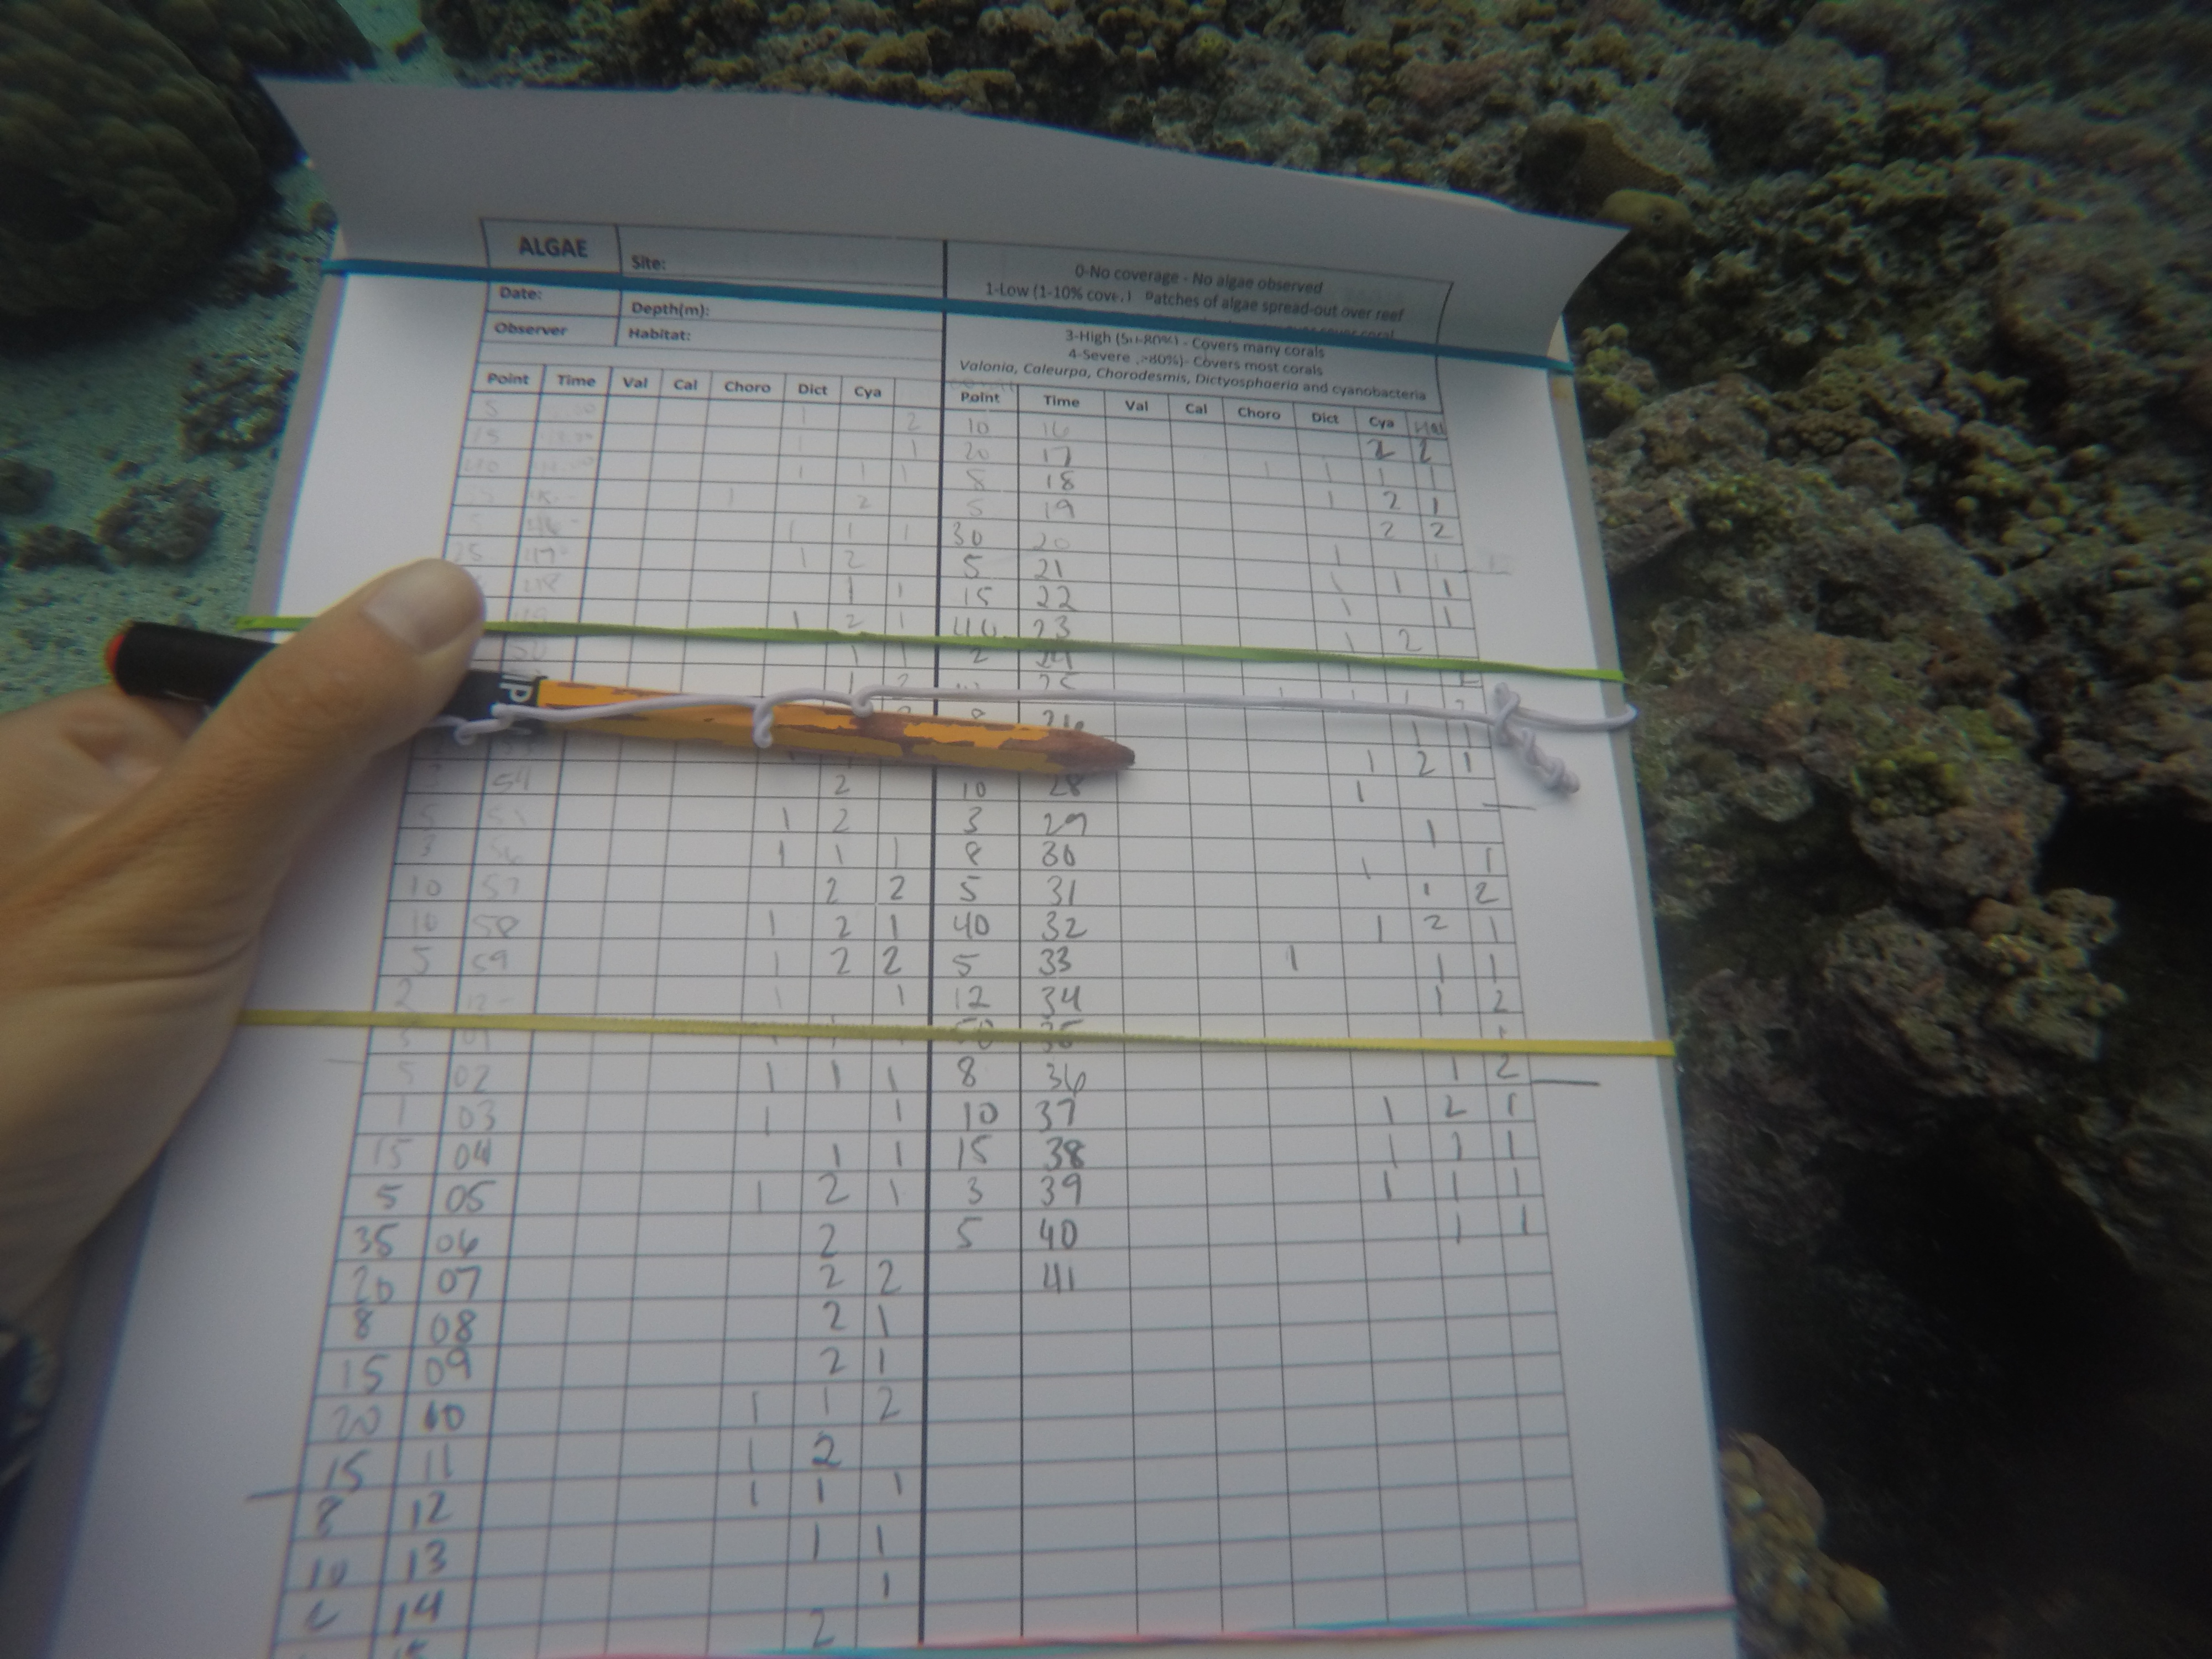 ALGAE Site:
Date: Depth(m):
Observer Habitat:
0-No coverage - No algae observed
1-Low (1-10% cove Patches of algae spread-out over reef
3-High (50-80%) - Covers many corals
4-Severe >80%)- Covers most corals
Valonia, Caleurpa, Chorodesmis, Dictyosphaeria and cyanobacteria
Point Time Val Cal Choro Dict Cya
5 1 2
15 1 1
1 1 1
1 2
1 1 1
25 47 1 2
48 1 1
1 2 1
50 1 1
1 2
54 2
5 1 2
3 56 1 1 1
10 57 2 2
10 58 1 2 1
5 59 1 2 2
2 12 1 1
3 01
5 02 1 1 1
1 03 1 1
15 04 1 1
5 05 1 2 1
35 06 2
20 07 2 2
8 08 2 1
15 09 2 1
20 10 1 1 2
15 11 1 2
8 12 1 1 1
10 13 1 1
14 1
2
Point Time Val Cal Choro Dict Cya Hal
10 16 2 2
20 17 1 1 1 1
8 18 1 2 1
5 19 2 2
30 20 1 1
5 21 1 1 1
15 22 1 1
40 23 1 2
2 24
25 1 1 1 2
8 26 1 1
1 2 1
10 28 1
3 29 1
8 30 1 1
5 31 1 2
40 32 1 2 1
5 33 1 1 1
12 34 1 2
50 35 1
8 36 1 2
10 37 1 2 1
15 38 1 1 1
3 39 1 1 1
5 40 1 1
41